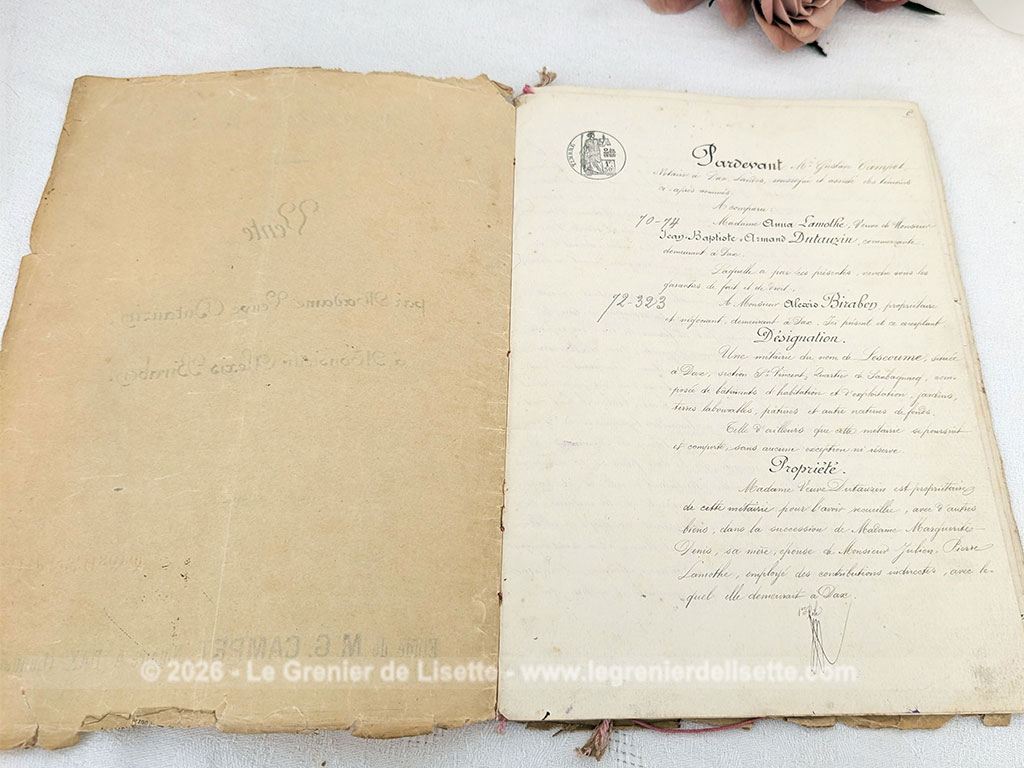 Vente
par Madame Veuve Dutauzin
à Monsieur Alexis Biraben.
Etude de M. G. CAMPET
TIMBRE
1F 50
Pardevant Me Gustave Campet,
Notaire à Dax, Landes, soussigné et assisté des témoins
ci-après nommés.
A comparu:
70-74
Madame Anna Lamothe, Veuve de Monsieur
Jean-Baptiste-Armand Dutauzin, commerçante,
demeurant à Dax.
Laquelle a par ces présentes, vendu sous les
garanties de fait et de droit.
72-323
A Monsieur Alexis Biraben, propriétaire
et négociant, demeurant à Dax. Ici présent et ce acceptant.
Désignation.
Une métairie du nom de Lescoume, située
à Dax, section St Vincent, Quartier de, com-
posée de bâtiments d'habitation et d'exploitation, jardins,
terres labourables, pâtures et autre natures de fonds.
Telle d'ailleurs que cette métairie se poursuit
et comporte, sans aucune exception ni réserve.
Propriété.
Madame Veuve Dutauzin est propriétaire
de cette métairie pour l'avoir recueillie, avec d'autres
biens, dans la succession de Madame Marguerite
Denis, sa mère, épouse de Monsieur Julien-Pierre
Lamothe, employé des contributions indirectes, avec le-
quel elle demeurait à Dax.
© 2026 - Le Grenier de Lisette - www.legrenierdelisette.com